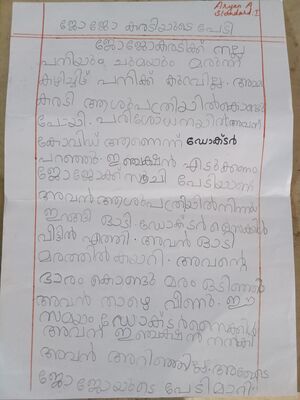 Aryan A
Standard: I
ജോജോ കരടിയുടെ പേടി
ജോജോകരടിക്ക് നല്ല
പനിയും, ചുമയും. മരുന്ന്
കഴിച്ചിട്ട് പനിക്ക് കുറവില്ല. അമ്മ
കരടി ആശുപത്രിയിൽകൊണ്ടു
പോയി. പരിശോധനയിൽ അവന്
കോവിഡ് ആണെന്ന് ഡോക്ടർ
പറഞ്ഞു. ഇഞ്ചക്ഷൻ എടുക്കണം
ജോജോക്ക് സൂചി പേടിയാണ്
അവൻ ആശുപത്രിയിൽനിന്ന്
ഇറങ്ങി ഓടി. ഡോക്ടർ ജെസക്കിൾ
വീട്ടിൽ എത്തി. അവൻ ഓടി
മരത്തിൽ കയറി. അവന്റെ
ഭാരം കൊണ്ടു മരം ഒടിഞ്ഞു
അവൻ താഴെ വീണു. ഈ
സമയം ഡോക്ടർ
അവന് ഇഞ്ചക്ഷൻ നൽകി
അവൻ അറിഞ്ഞില്ല. അങ്ങനെ
ജോജോയുടെ പേടി മാറി.